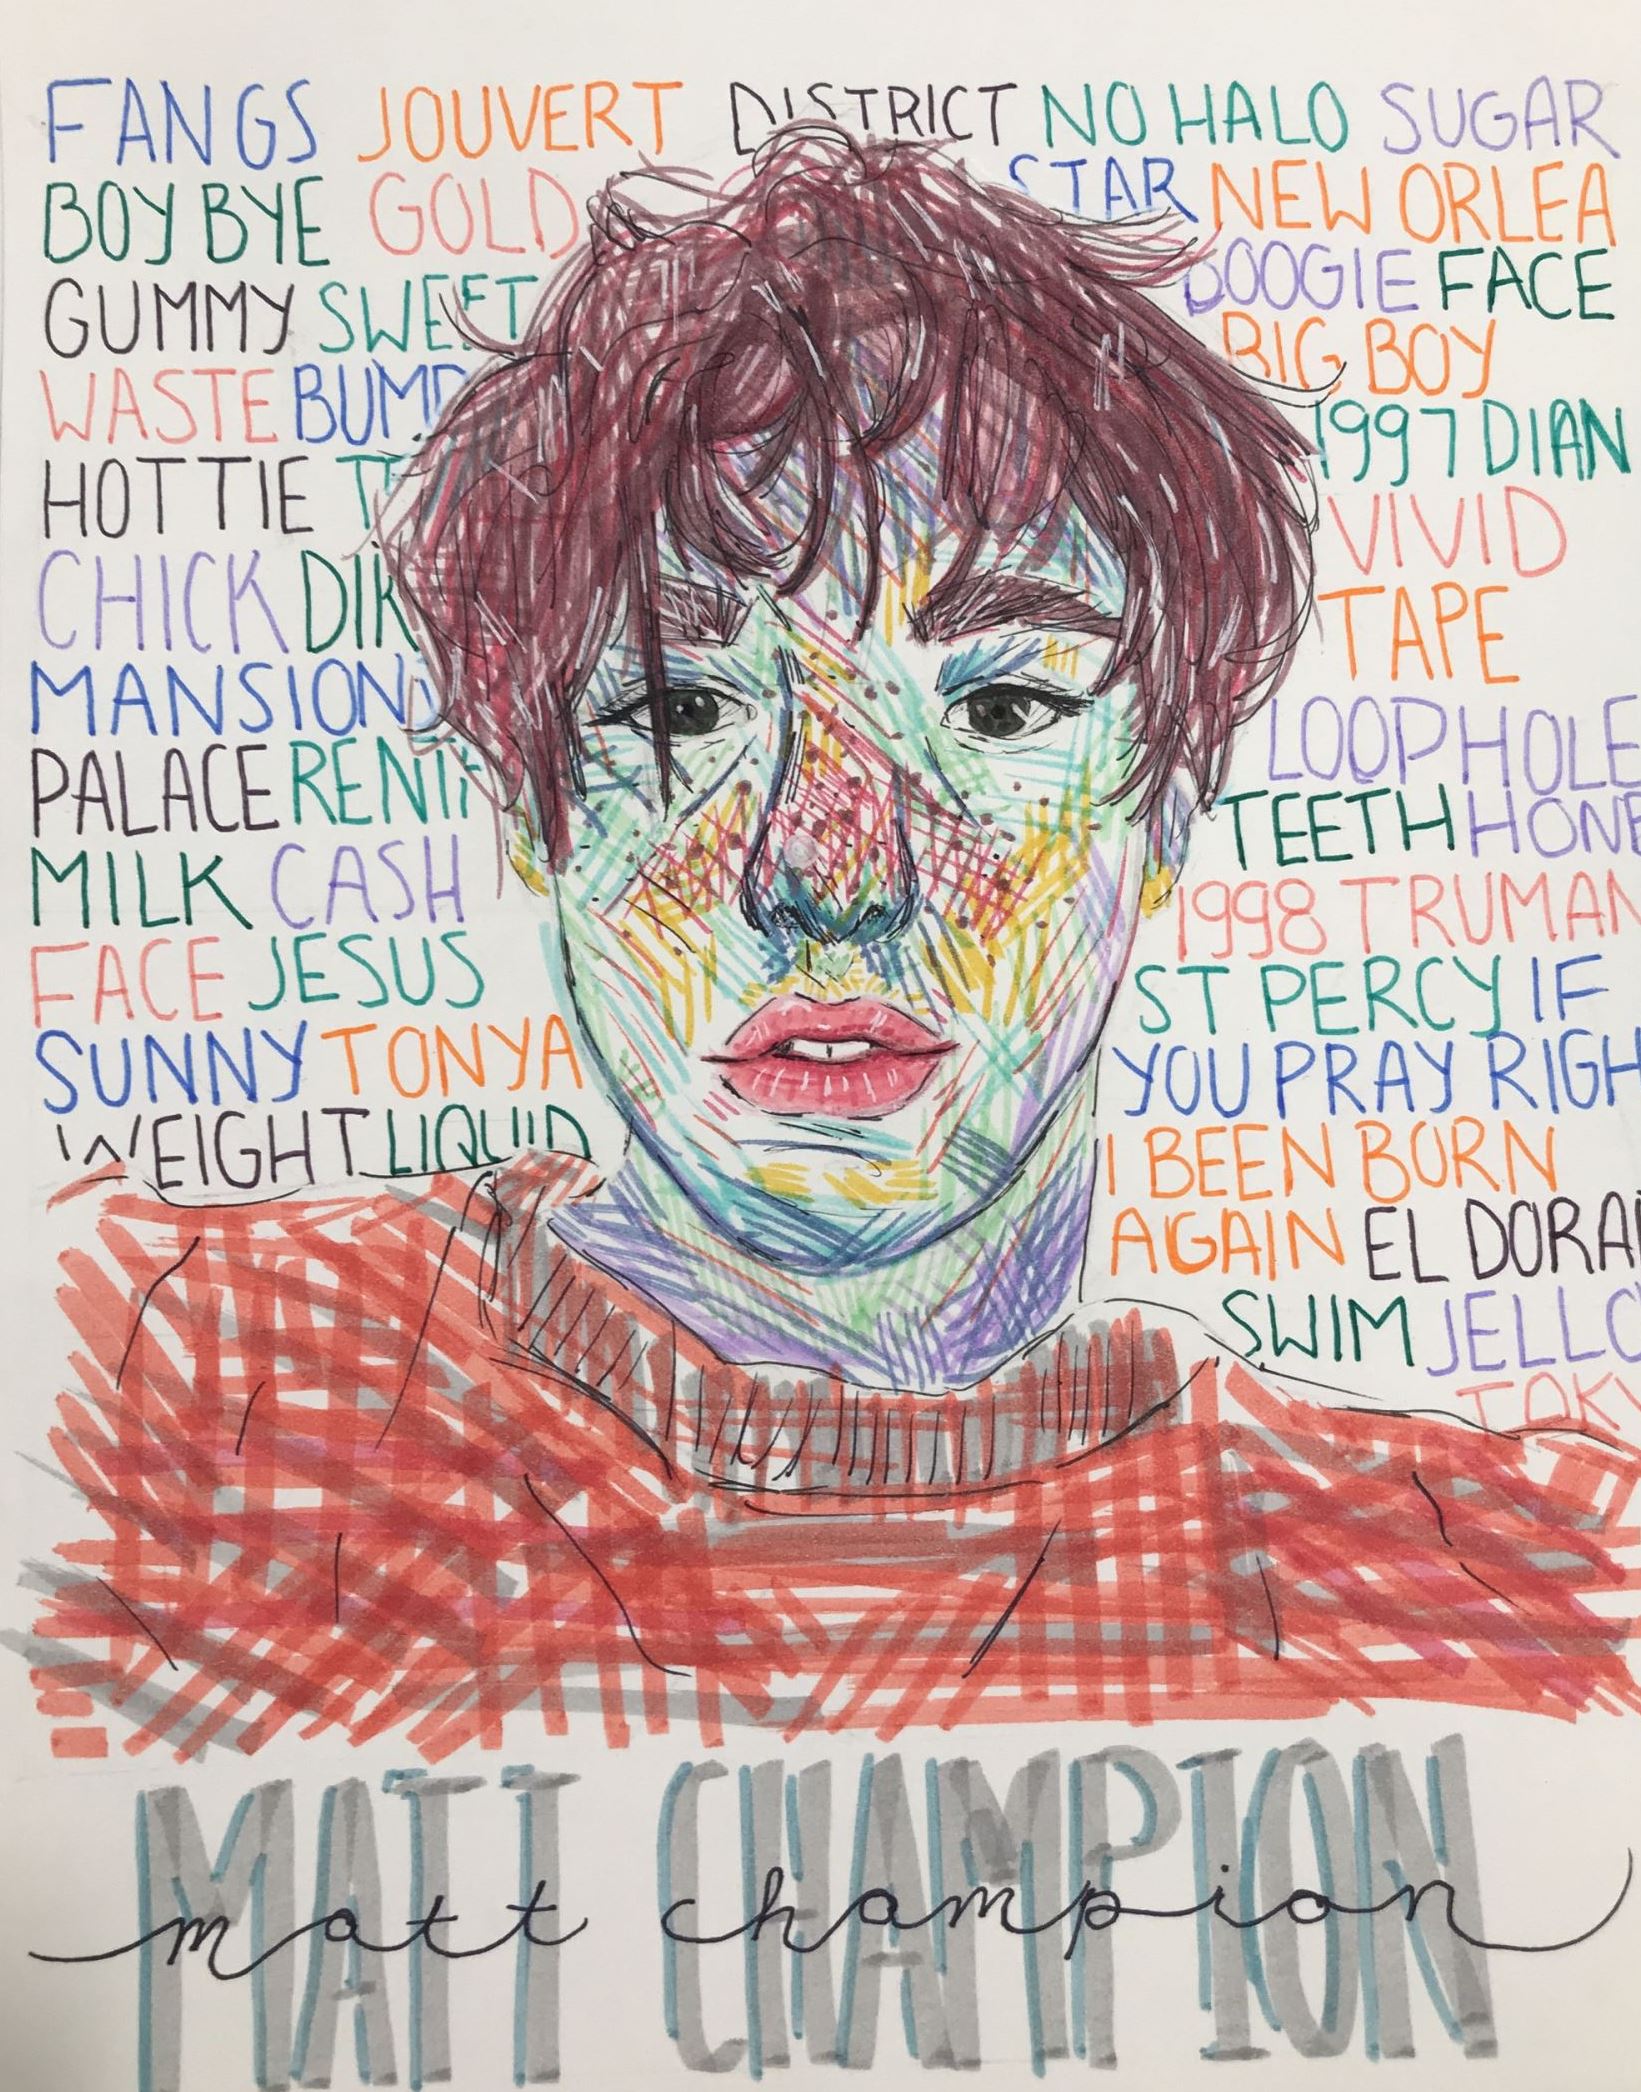 FANGS JOUVERT DISTRICT NO HALO SUGAR
BOY BYE GOLD STAR NEW ORLEA
GUMMY SWEET BOOGIE FACE
WASTE BUMP BIG BOY
HOTTIE 1997 DIAN
CHICK VIVID
MANSION TAPE
PALACE LOOPHOLE
MILK CASH TEETH HONE
FACE JESUS 1998 TRUMAN
SUNNY TONYA ST PERCY IF
WEIGHT LIQUID YOU PRAY RIGH
I BEEN BORN
AGAIN EL DORA
SWIM JELLO
TOKY
MATT CHAMPION
matt champion